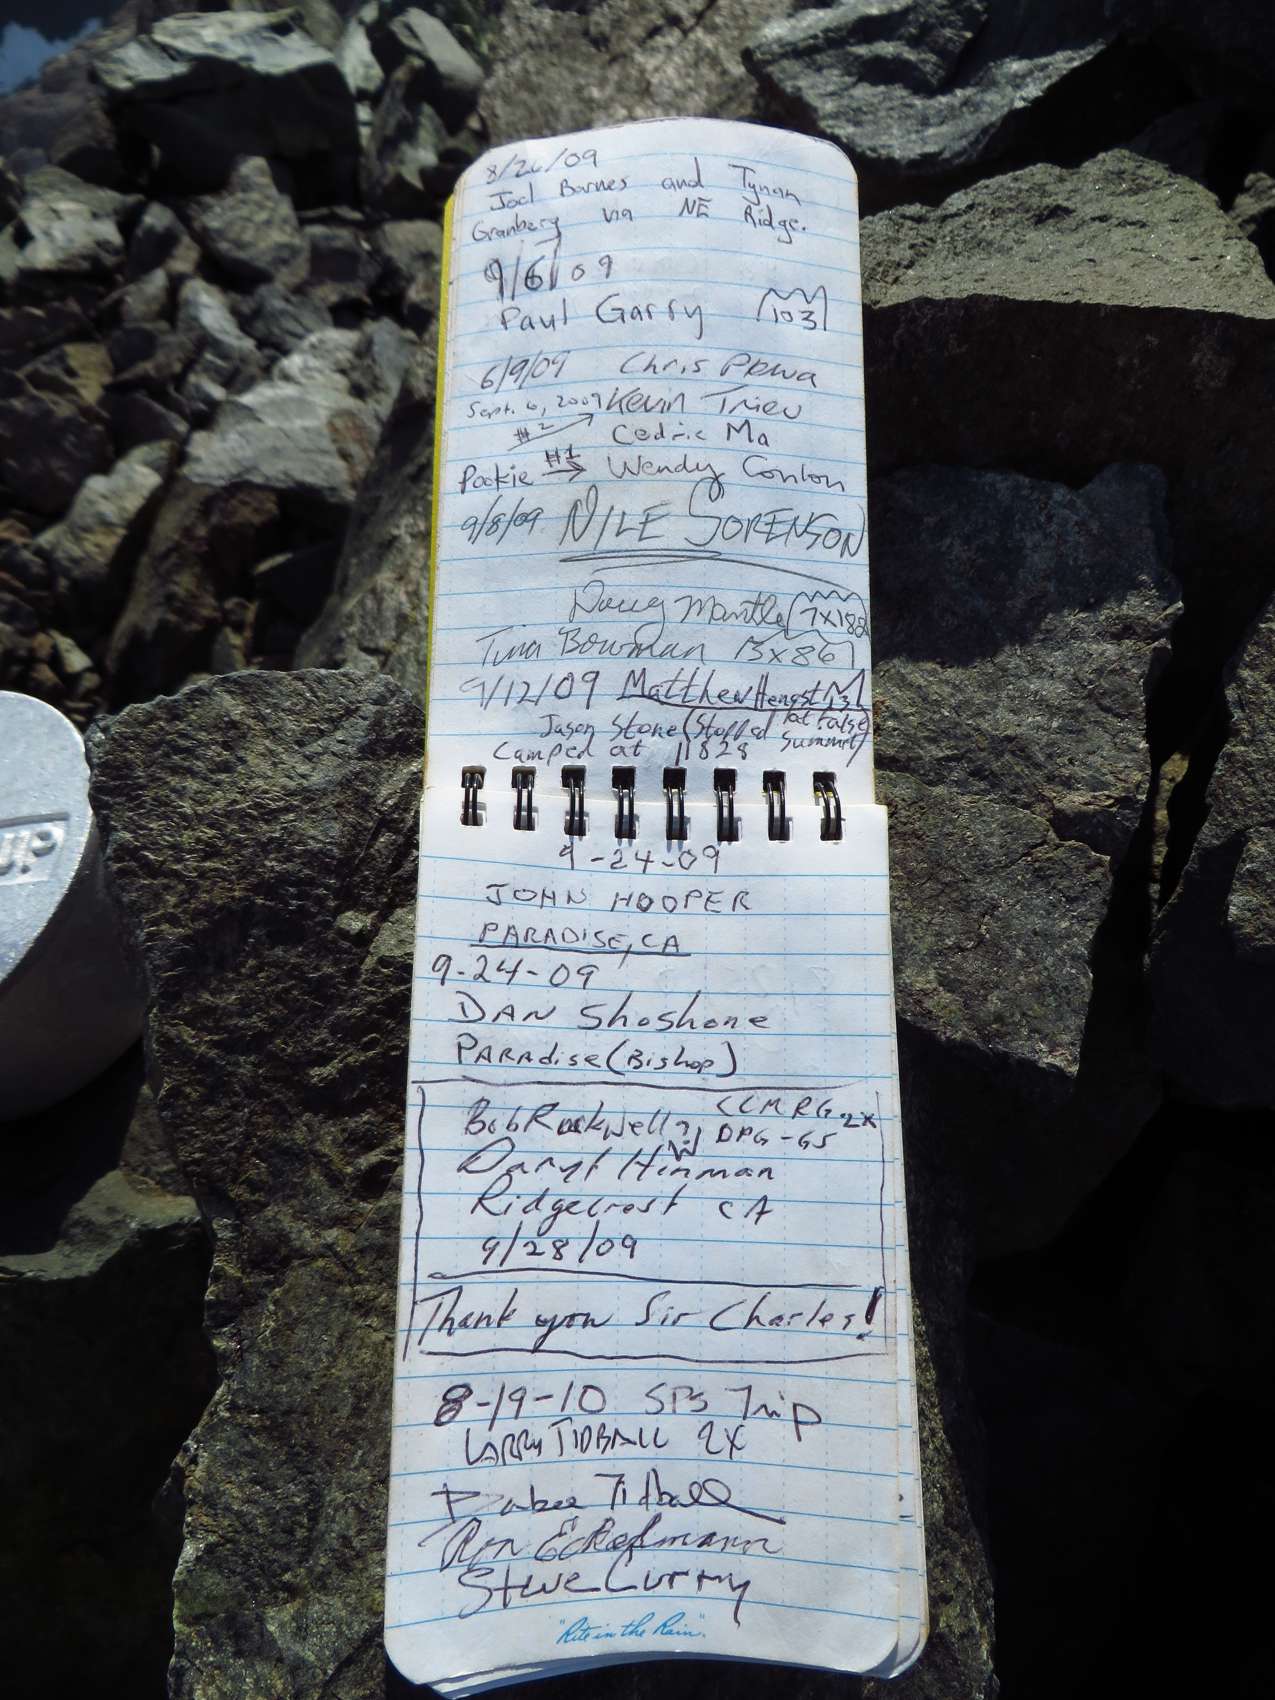 8/26/09
Joel Barnes and Tynan
Granberg via NE Ridge.
9/6/09
Paul Garry 103
6/9/09 Chris
Sept. 6, 2009 Kevin Trieu
#2
Cedric Ma
Pookie #1 Wendy Conlon
9/8/09 NILE SORENSON
Doug Mantle 7x188
Tina Bowman 3x86
9/12/09 Matthew Hengst 13
Jason Stone (Stopped at false summit)
Camped at 11828
9-24-09
JOHN HOOPER
PARADISE, CA
9-24-09
DAN Shoshone
PARAdise (Bishop)
Bob Rockwell CLMRG 2X
DPG-GS
Daryl Hinman
Ridgecrest CA
9/28/09
Thank you Sir Charles!
8-19-10 SPS Trip
LARRY TIDBALL 2X
Barbee Tidball
Ron Eckelmann
Steve Curry
"Rite in the Rain".